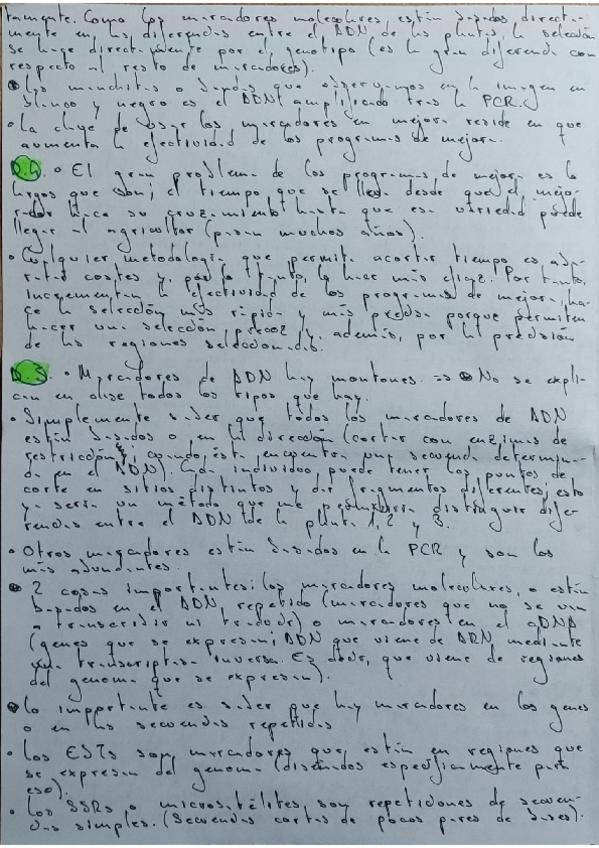 tamente. Como los marcadores moleculares, están basados, directa-
mente en las diferencias entre el ADN de las plantas, la selección
se hace directamente por el genotipo (es la gran diferencia con
respecto al resto de marcadores).
• Las manchitas o bandas que observamos en la imagen en
blanco y negro es el ADN amplificado tras la PCR.
• La clave de usar los marcadores en mejora reside en que
aumenta la efectividad de los programas de mejora.
D.4. • El gran problema de los programas de mejora es lo
largos que son; el tiempo que se lleva desde que el mejo-
rador hace su cruzamiento hasta que esa variedad puede
llegar al agricultor (pasan muchos años).
• Cualquier metodología que permita acortar tiempo es
costes y, por lo tanto, la hace más eficaz. Por tanto,
incrementan la efectividad de los programas de mejora, ha-
ce la selección más rápida y más precisa porque permiten
hacer una selección precoz y, además, por la precisión
de las regiones seleccionadas.
D.5. • Marcadores de ADN hay montones. => • No se expli-
can en clase todos los tipos que hay.
• Simplemente saber que todos los marcadores de ADN
están basados o en la dirección (cortar con enzimas de
restricción, cuando ésta encuentra una secuencia determina-
da en el ADN). Cada individuo puede tener los puntos de
corte en sitios distintos y dar fragmentos diferentes; esto
ya sería un método que me permitiría distinguir dife-
rencias entre el ADN de la planta 1, 2 y 3.
• Otros marcadores están basados en la PCR y son los
más abundantes.
• 2 cosas importantes: los marcadores moleculares, o están
basados en el ADN, repetido (marcadores que no se van
a transcribir ni traducir) o marcadores en el cDNA
(genes que se expresan; ADN que viene de ARN mediante
una transcriptasa inversa. Es decir, que viene de regiones
del genoma que se expresan).
• Lo importante es saber que hay marcadores en los genes
o en las secuencias repetidas
• Los ESTs son marcadores que, están en regiones que
se expresan del genoma (diseñados específicamente para
eso).
• Los SSRs o microsatélites, son repeticiones de secuen-
cias simples. (Secuencias cortas de pocos pares de bases).